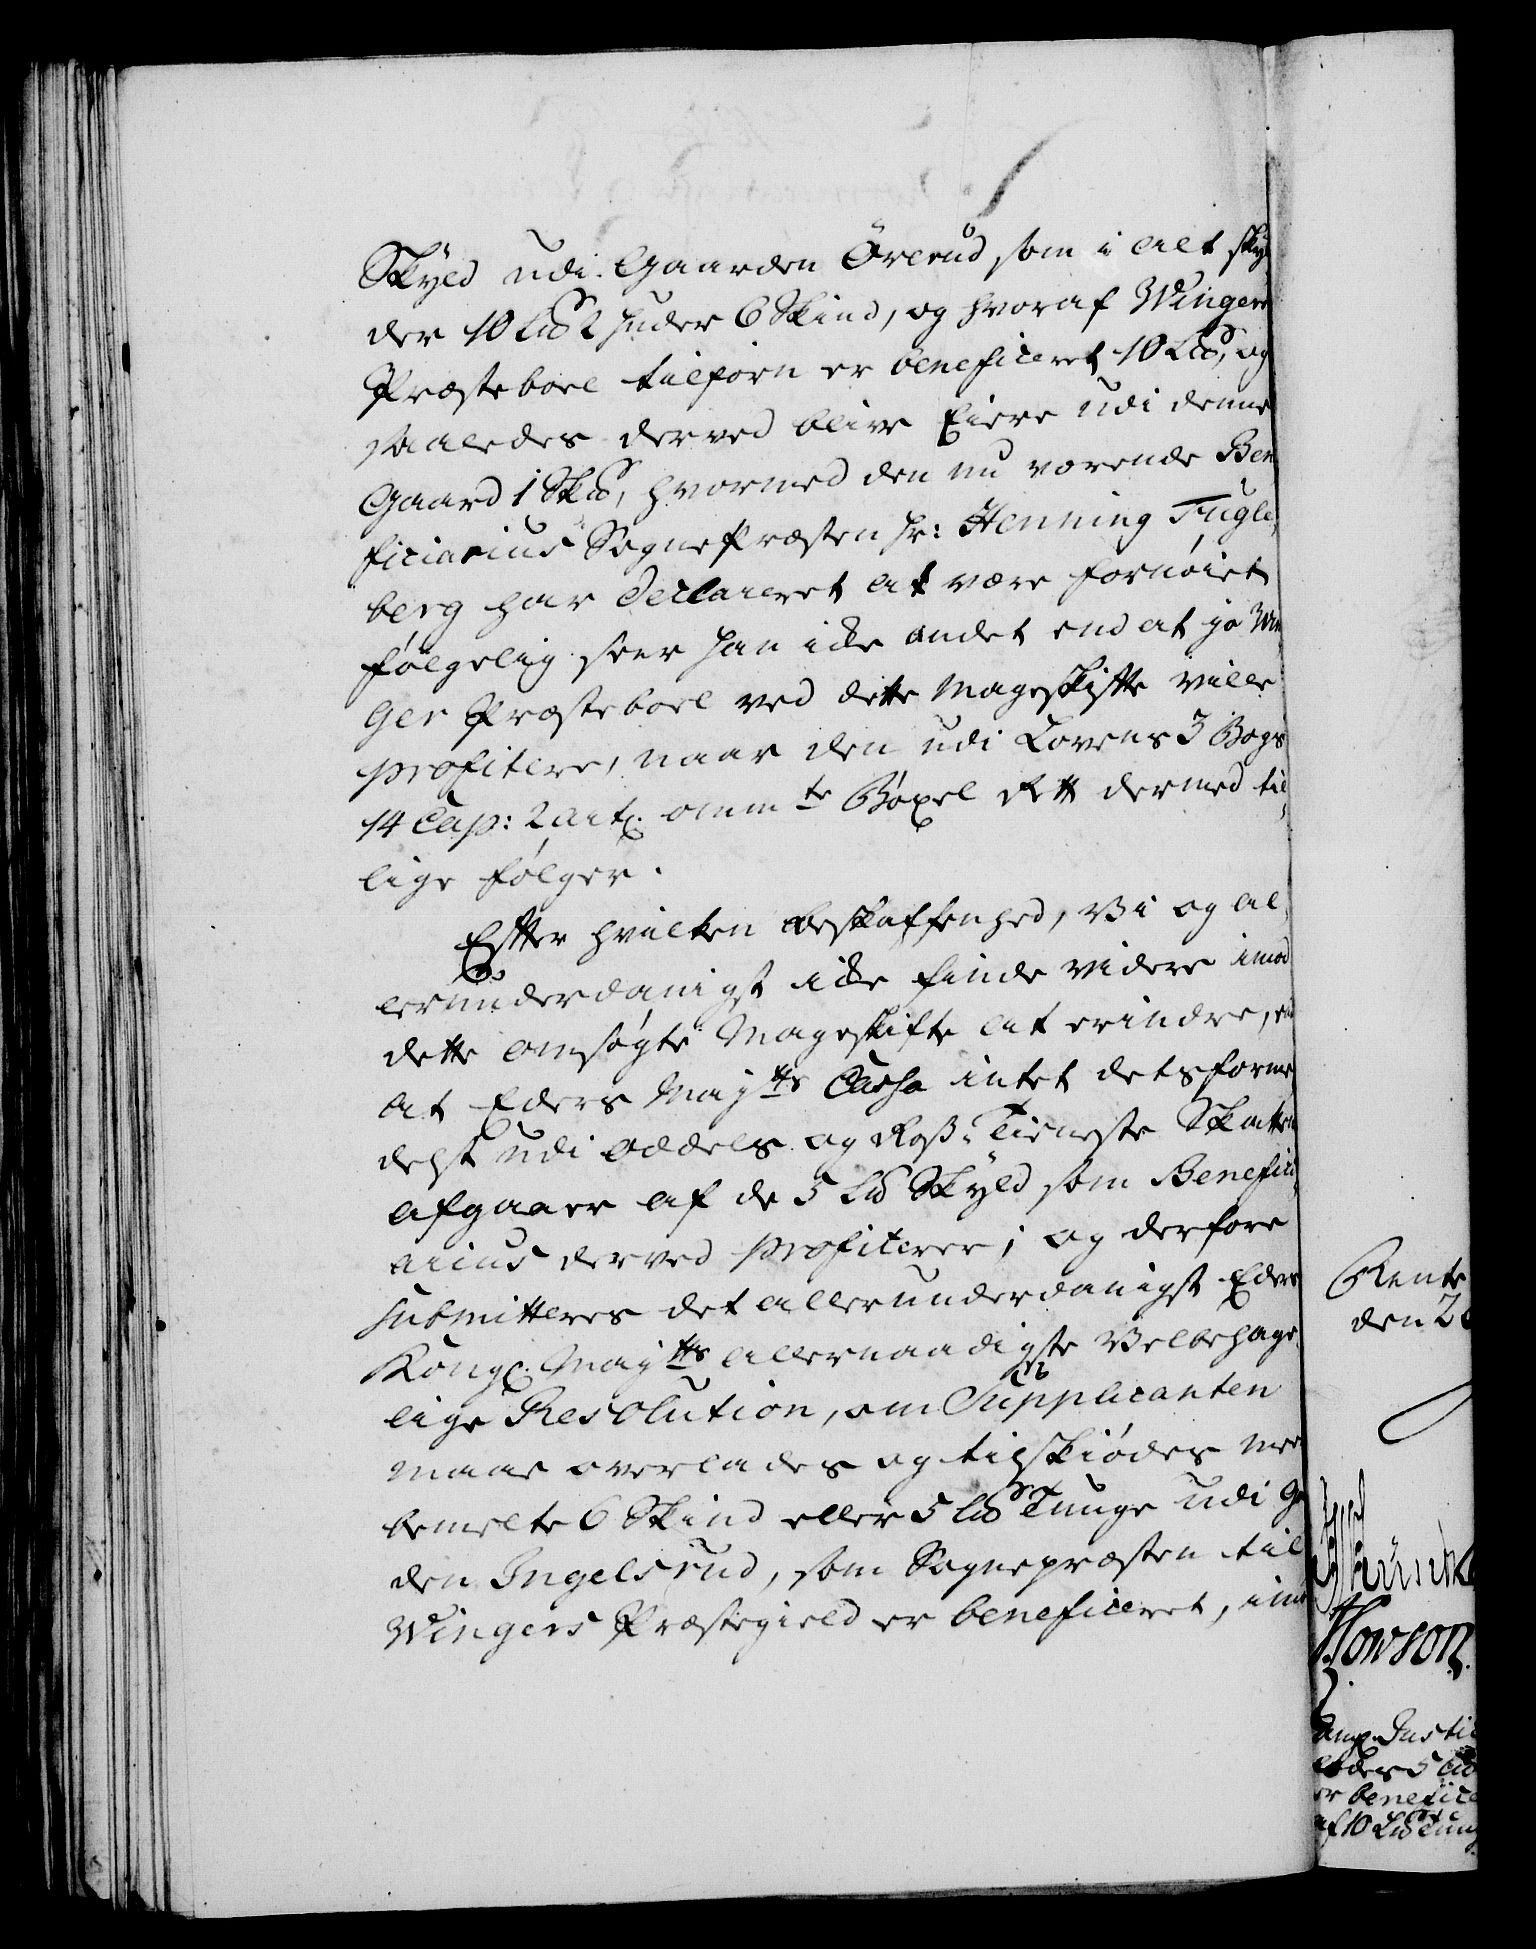 Skyld udi Gaarden Örerud som i alt skyl
der 10 L℔ 2 huder 6 Skind, og hvoraf Wingers
Præsteboel tilforn er beneficeret 10 L℔, og
saaledes derved blive Eiere udi denne
Gaard 1 Sk℔, hvormed den nu værende Ben
ficiarius Sogne Præsten hr: Henning Fugle,
berg har declareret at være fornöiet
fölgelig seer han icke andet end at jo Win,
ger Præsteboel ved dette Mageskifte ville
profitere, naar den udi Lovens 3 Bogs
14 Cap: 2 art. omm te Böxel Rett dermed til,
lige fölger.
Efter hvilken beskaffenhed, Vi og al,
lerunderdanigst icke finde videre imod
dette omsögte Mageskifte at erindre, end
at Eders May tts Cassa intet detsforme
delst udi oddels og Ross-Tieneste Skatten
afgaaer af de 5 L℔ Skyld som Benefici,
arius derved profiterer; og derfore
submitteres det allerunderdanigst Eders
Kongl. May tts allernaadigste Velbehage,
lige Resolution, om Supplicanten
maae overlades og tilskiödes meer
bemelte 6 Skind eller 5 L℔ Tunge udi Ga
den Ingelsrud, som Sognepræsten til
Wingers Præstegield er beneficeret, imod
Rente
den 2
Howson
Justi
5 L℔
er benefice
af 10 L℔ Tung